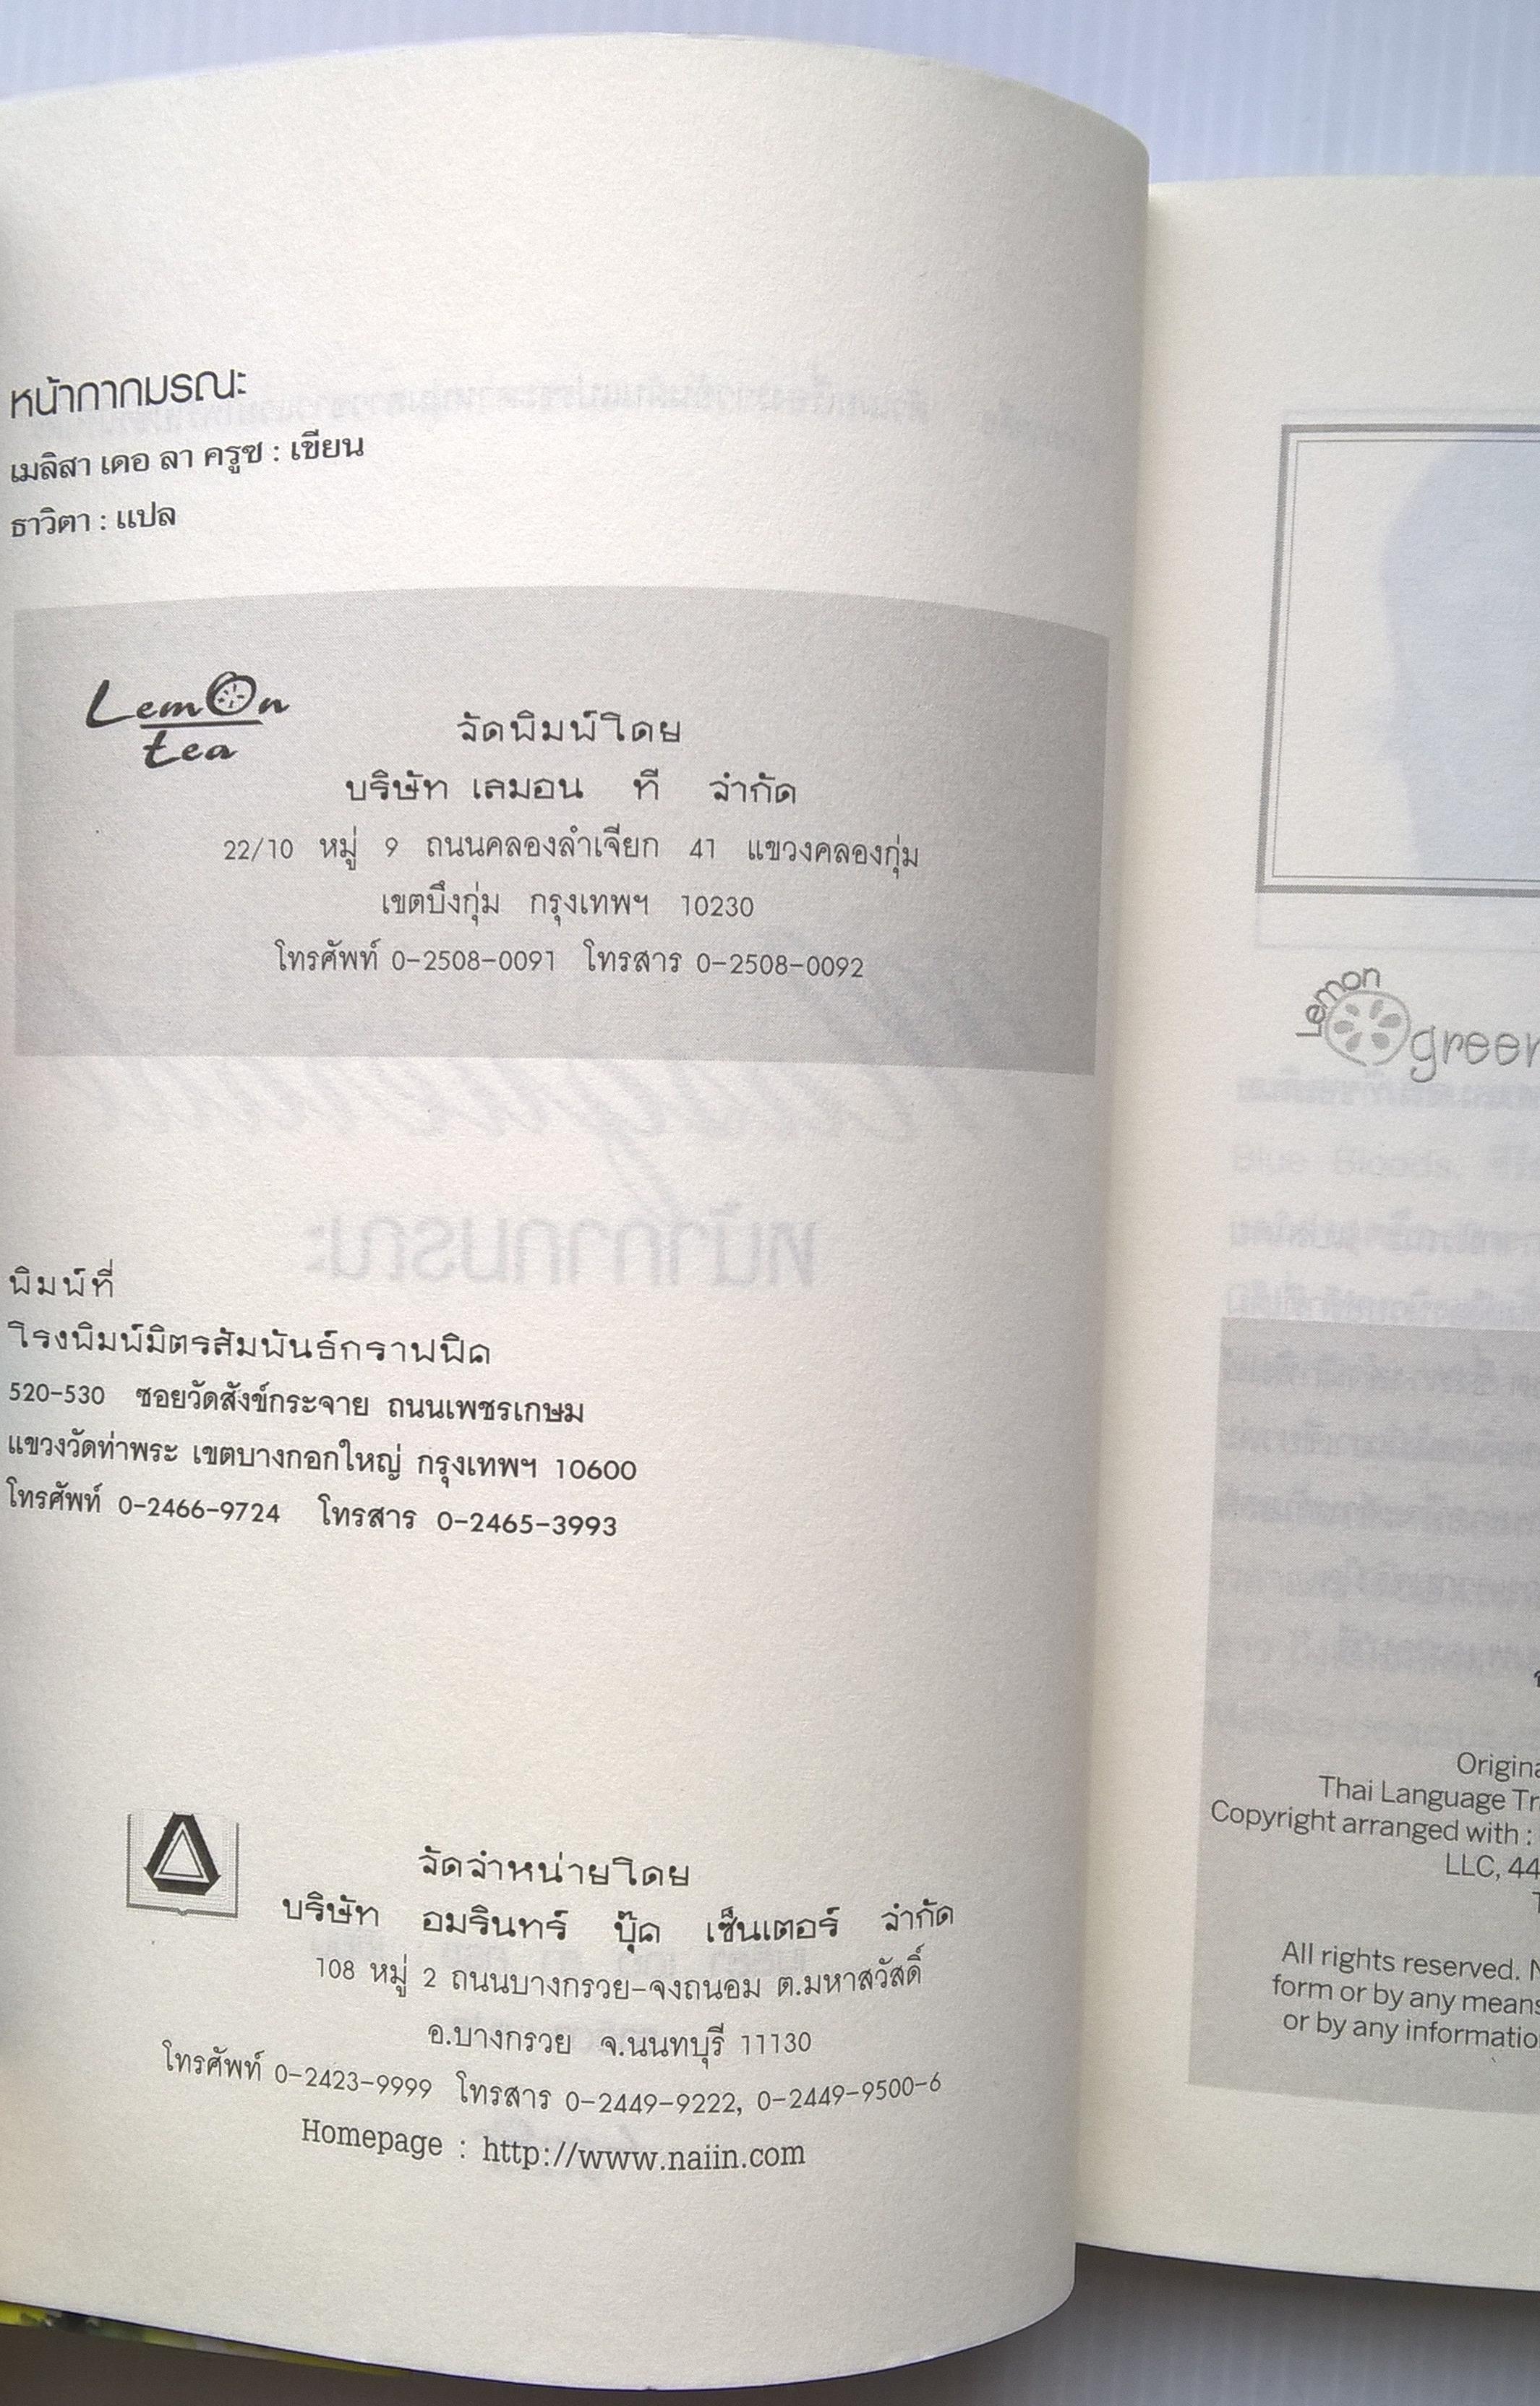 หน้ากากมรณะ
เมลิสา เดอ ลา ครูซ : เขียน
ธาวิตา : แปล
Lemon
tea
จัดพิมพ์โดย
บริษัท เลมอน ที จำกัด
22/10 หมู่ 9 ถนนคลองลำเจียก 41 แขวงคลองกุ่ม
เขตบึงกุ่ม กรุงเทพฯ 10230
โทรศัพท์ 0-2508-0091 โทรสาร 0-2508-0092
พิมพ์ที่
โรงพิมพ์มิตรสัมพันธ์กราฟฟิค
520-530 ซอยวัดสังข์กระจาย ถนนเพชรเกษม
แขวงวัดท่าพระ เขตบางกอกใหญ่ กรุงเทพฯ 10600
โทรศัพท์ 0-2466-9724 โทรสาร 0-2465-3993
จัดจำหน่ายโดย
บริษัท อมรินทร์ บุ๊ค เซ็นเตอร์ จำกัด
108 หมู่ 2 ถนนบางกรวย-จงถนอม ต.มหาสวัสดิ์
อ.บางกรวย จ.นนทบุรี 11130
โทรศัพท์ 0-2423-9999 โทรสาร 0-2449-9222, 0-2449-9500-6
Homepage : http://www.naiin.com
Lemon
green
Origina
Thai Language Tr
Copyright arranged with :
LLC, 44
All rights reserved. N
form or by any means
or by any informatio